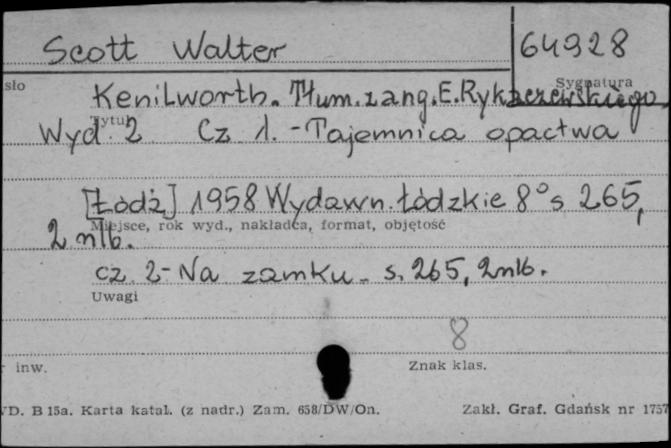 Scott Walter 64928
sło Sygnatura
Kenilworth. Tłum. z ang. E. Rykaczewskiego,
Tytuł
Wyd. 2 Cz 1. - Tajemnica opactwa
[Łódź] 1958 Wydawn. Łódzkie 8° s 265,
Miejsce, rok wyd., nakładca, format, objętość
2 nlb.
cz. 2 - Na zamku - s. 265, 2nlb.
Uwagi
8
r inw. Znak klas.
VD. B 15a. Karta katal. (z nadr.) Zam. 658/DW/On. Zakł. Graf. Gdańsk nr 1757